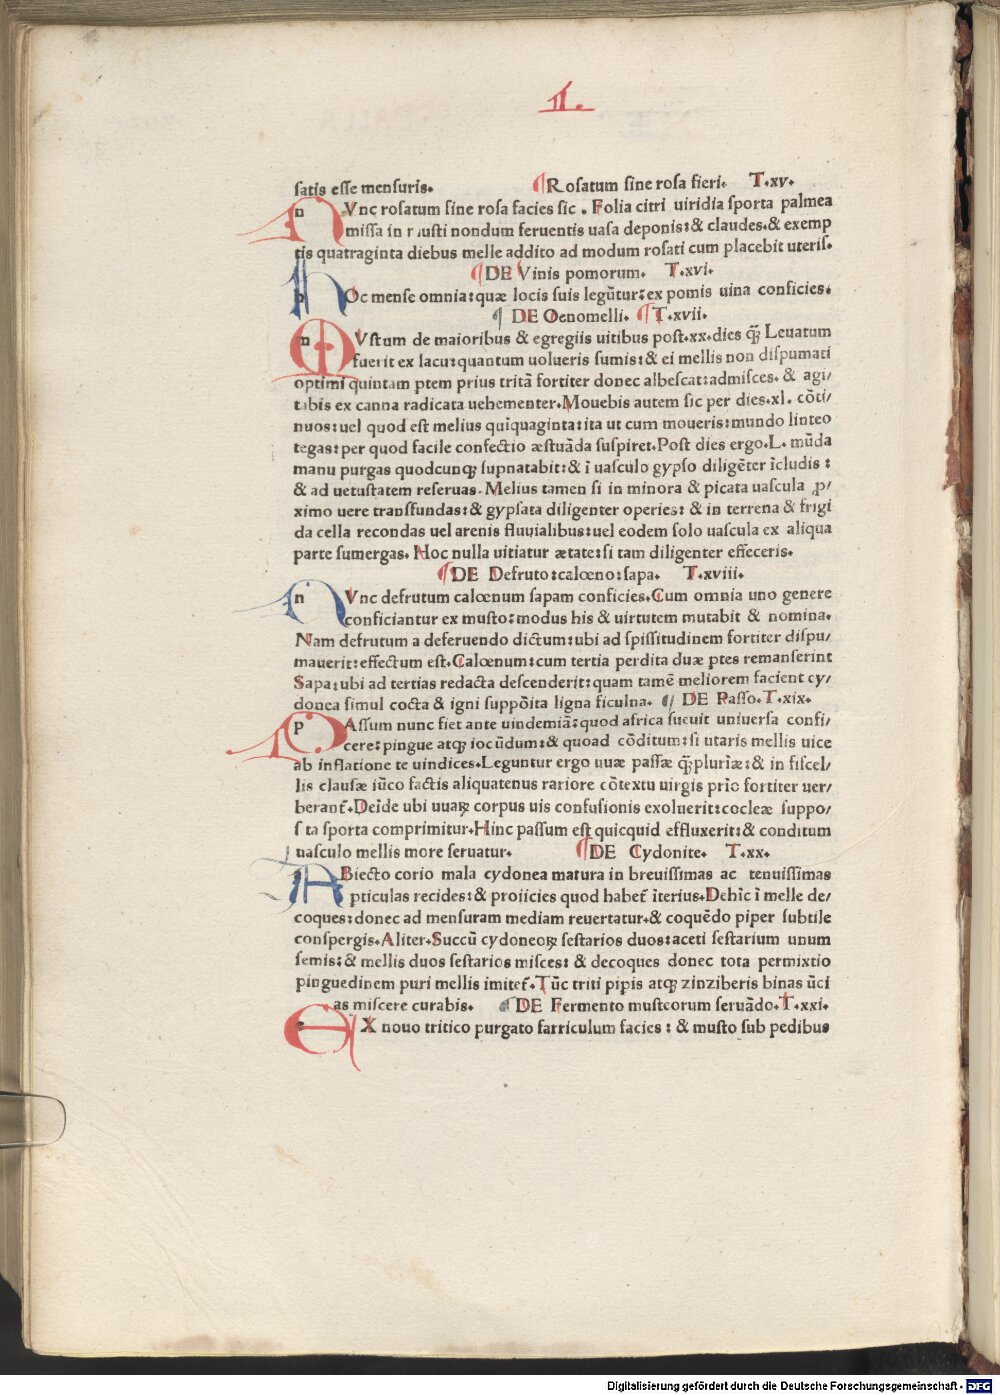 II.
satis esse mensuris. ¶Rosatum sine rosa fieri. T.xv.
NVnc rosatum sine rosa facies sic. Folia citri uiridia sporta palmea
missa in musti nondum feruentis uasa deponis:& claudes.& exemp
tis quatraginta diebus melle addito ad modum rosati cum placebit uteris.
¶DE Vinis pomorum. T.xvi.
HOc mense omnia:quæ locis suis legūtur:ex pomis uina conficies.
¶ DE Oenomelli. ¶T.xvii.
MVstum de maioribus & egregiis uitibus post.xx.dies qꝫ Leuatum
fuerit ex lacu:quantum uolueris sumis:& ei mellis non dispumati
optimi quintam ptem prius tritā fortiter donec albescat:admisces. & agi/
tabis ex canna radicata uehementer.Mouebis autem sic per dies.xl. cōti/
nuos:uel quod est melius quīquaginta:ita ut cum moueris:mundo linteo
tegas:per quod facile confectio æstuāda suspiret.Post dies ergo.L. mūda
manu purgas quodcunqꝫ supnatabit:& ī uasculo gypso diligēter īcludis :
& ad uetustatem reseruas.Melius tamen si in minora & picata uascula ꝓ/
ximo uere transfundas:& gypsata diligenter operies: & in terrena & frigi
da cella recondas uel arenis fluuialibus:uel eodem solo uascula ex aliqua
parte sumergas. Hoc nulla uitiatur ætate:si tam diligenter effeceris.
¶DE Defruto:calœno:sapa. T.xviii.
NVnc defrutum calœnum sapam conficies.Cum omnia uno genere
conficiantur ex musto:modus his & uirtutem mutabit & nomina.
Nam defrutum a deferuendo dictum:ubi ad spissitudinem fortiter dispu/
mauerit:effectum est.Calœnum:cum tertia perdita duæ ptes remanserint
Sapa:ubi ad tertias redacta descenderit:quam tamē meliorem facient cy/
donea simul cocta & igni suppōita ligna ficulna. ¶ DE Passo.T.xix.
PAssum nunc fiet ante uindemiā:quod africa sueuit uniuersa confi/
cere:pingue atqꝫ iocūdum:& quoad cōditum:si utaris mellis uice
ab inflatione te uindices.Leguntur ergo uuæ passæ qꝫpluriæ:& in fiscel/
lis clausæ iūco factis aliquatenus rariore cōtextu uirgis prīo fortiter uer/
beranť.Deīde ubi uuaꝝ corpus uis confusionis exoluerit:cocleæ suppo/
sta sporta comprimitur.Hinc passum est quicquid effluxerit:& conditum
uasculo mellis more seruatur. ¶DE Cydonite. T.xx.
ABiecto corio mala cydonea matura in breuissimas ac tenuissimas
pticulas recides:& proiicies quod habeť īterius.Dehīc ī melle de/
coques:donec ad mensuram mediam reuertatur.& coquēdo piper subtile
conspergis.Aliter.Succū cydoneoꝝ sestarios duos:aceti sestarium unum
semis:& mellis duos sestarios misces: & decoques donec tota permixtio
pinguedinem puri mellis imiteť.Tūc triti pipis atqꝫ zinziberis binas ūci
as miscere curabis. ¶DE Fermento musteorum seruādo.T.xxi.
EX nouo tritico purgato farriculum facies : & musto sub pedibus
Digitalisierung gefördert durch die Deutsche Forschungsgemeinschaft - DFG